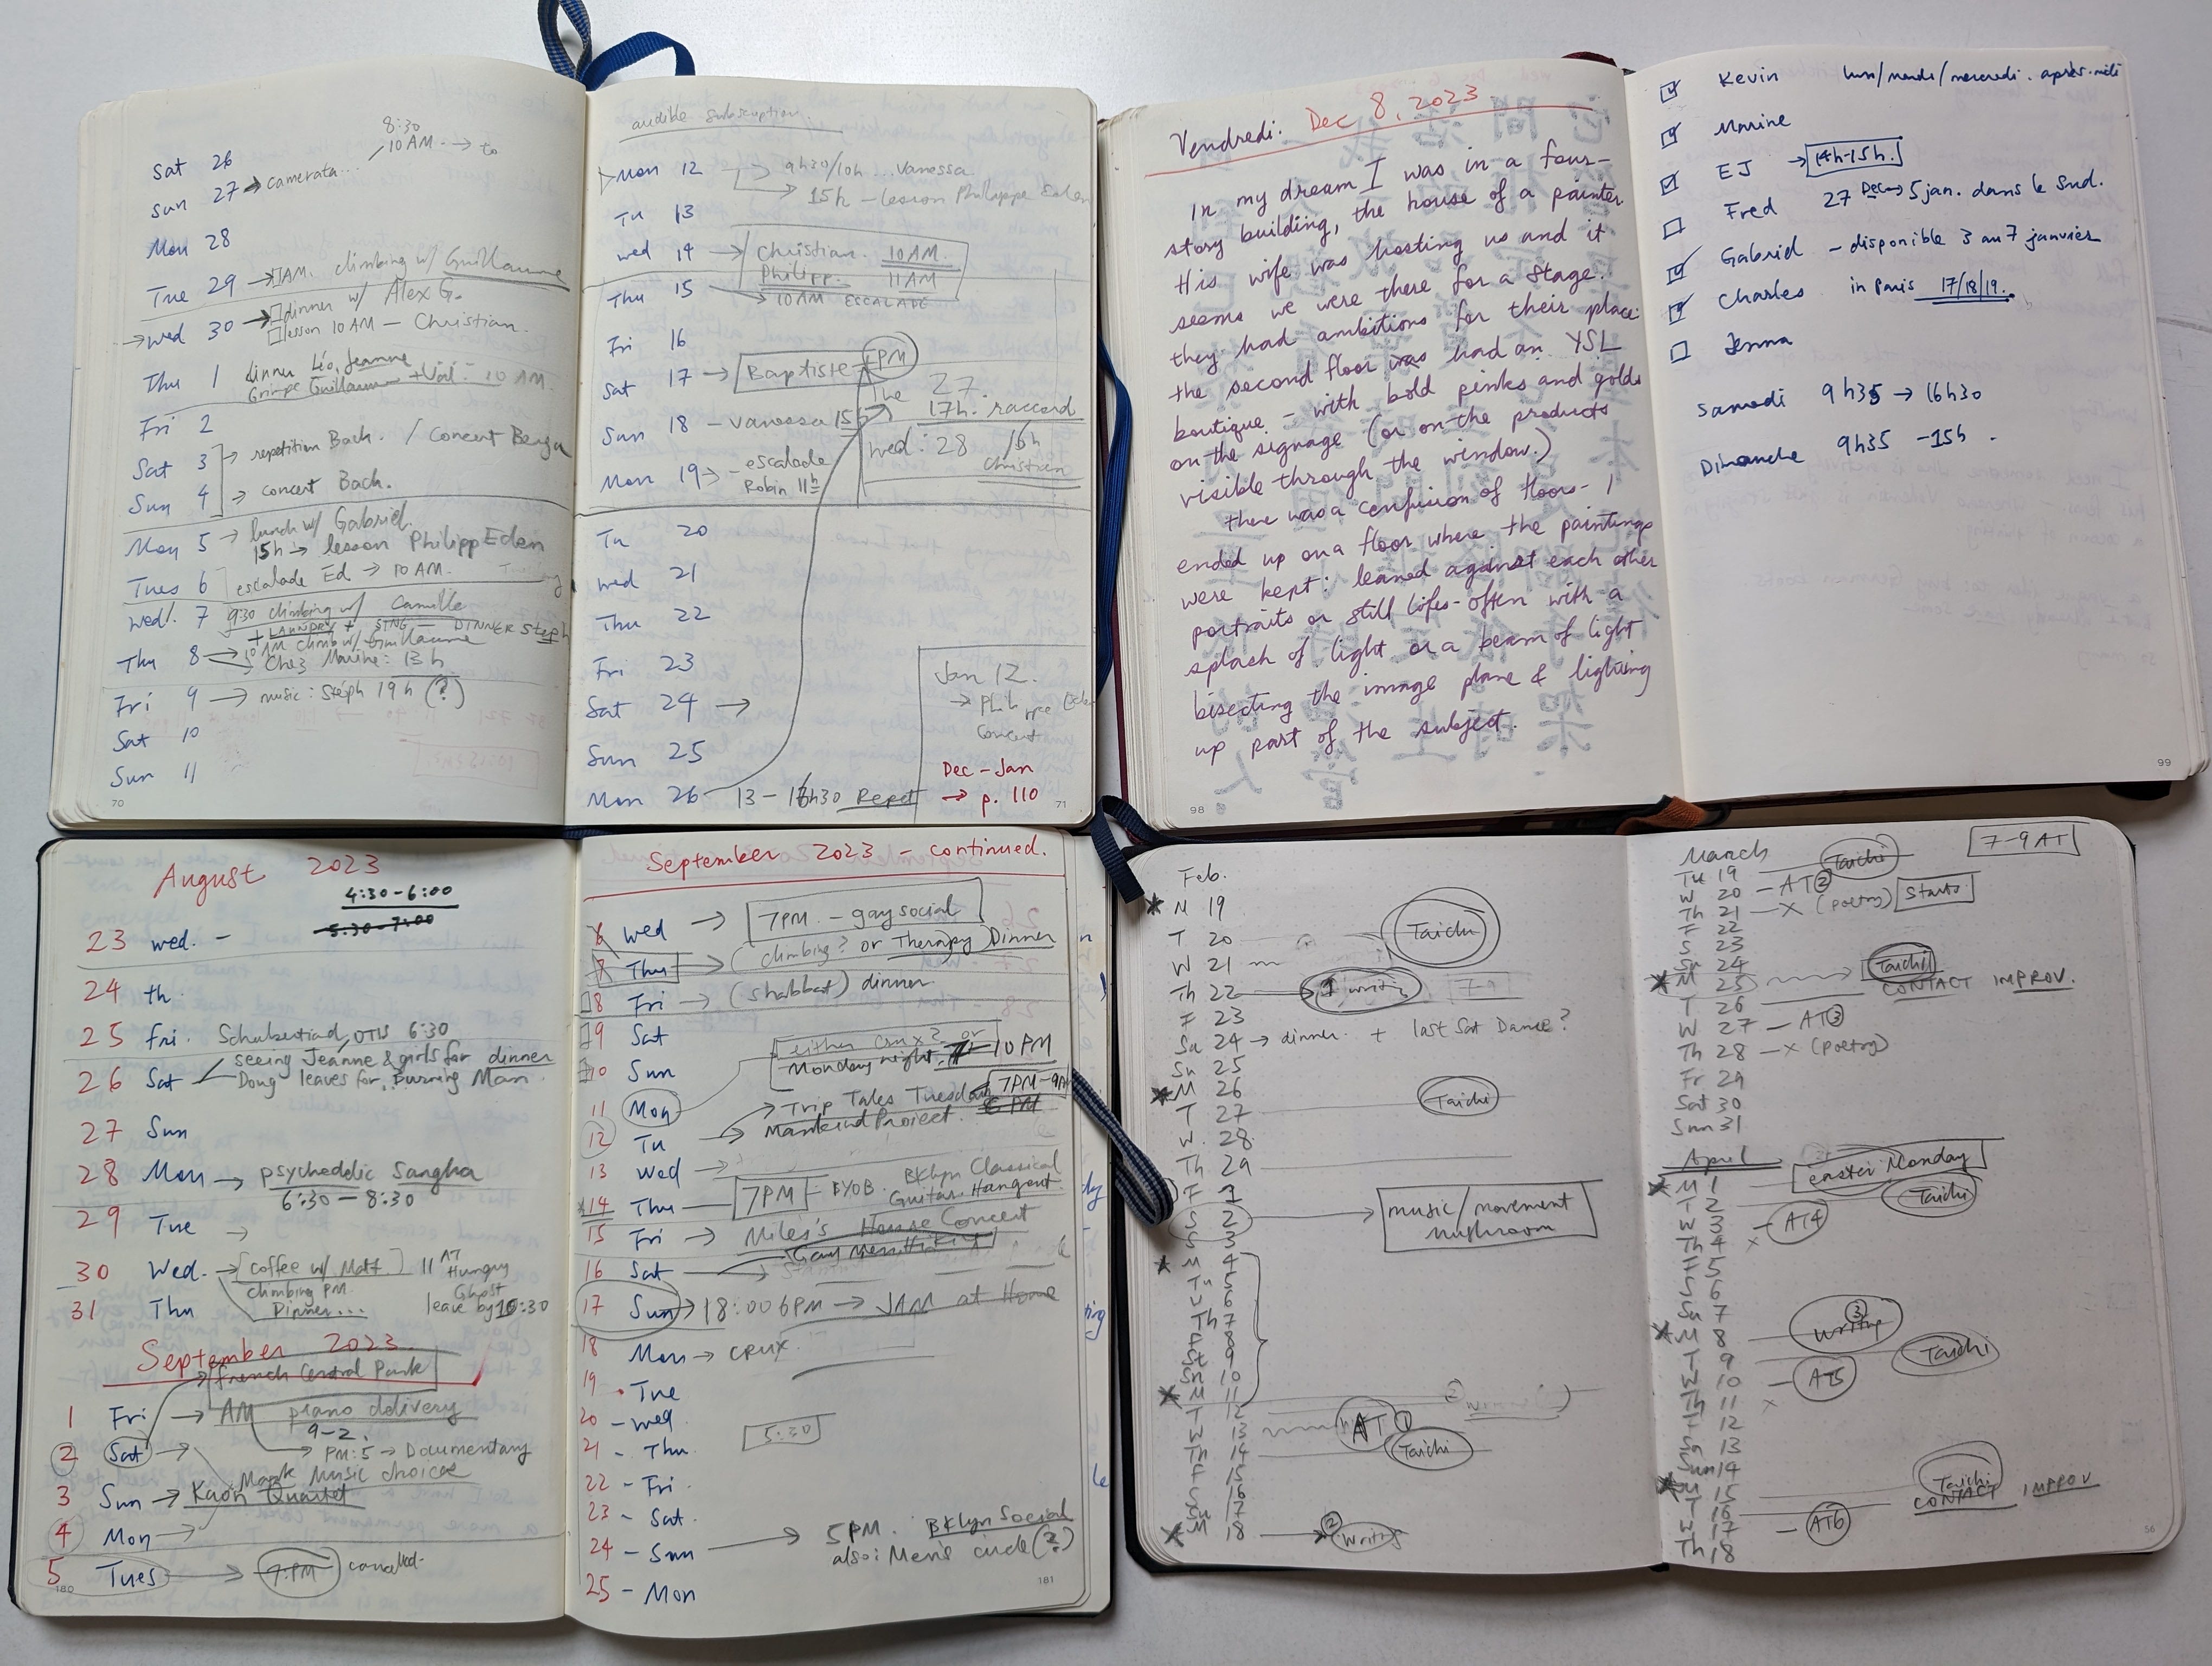 8:30
10 AM. → to
Sat 26
Sun 27 → camerata...
Mon 28
Tue 29 → 7AM. climbing w/ Guillaume
→ Wed 30 → □ dinner w/ Alex G.
□ lesson 10 AM — Christian.
Thu 1 dinner Léo, Jeanne
Grimpe Guillaume + Val - 10 AM.
Fri 2
Sat 3 → repetition Bach. / Concert
Sun 4 → concert Bach.
Mon 5 → lunch w/ Gabriel.
15h → lesson Philipp Eden
Tues 6 escalade Ed → 10 AM.
Wed. 7 9:30 climbing w/ Camille
+ LAUNDRY + SING — DINNER Steph
Thu 8 → 10 AM climb w/ Guillaume
→ Chez Marine: 13h
Fri 9 → music: Stéph 19h (?)
Sat 10
Sun 11
70
audible subscription.
Mon 12 → 9h30/10h ... Vanessa.
→ 15h — lesson Philippe
Tu 13
Wed 14 → Christian. 10 AM.
Philipp. 11 AM
Thu 15 → 10 AM ESCALADE
Fri 16
Sat 17 → Baptiste PM
Sun 18 — Vanessa 15
Mon 19 → - escalade
Robin 11h
27
17h. raccord
Wed: 28 16h
Christian
Tu 20
Wed 21
Thu 22
Fri 23
Sat 24 →
Sun 25
Mon 26 13 - 16h30 Repet
Jan 12.
→ Philippe
Concert
Dec - Jan
→ p. 110
71
Vendredi. Dec 8, 2023
In my dream I was in a four-
story building, the house of a painter
His wife was hosting us and it
seems we were there for a stage.
they had ambitions for their place:
the second floor was had an YSL
boutique - with bold pinks and golds
on the signage (or on the products
visible through the window.)
there was a confusion of floors - I
ended up on a floor where the paintings
were kept: leaned against each other
portraits or still lifes - often with a
splash of light or a beam of light
bisecting the image plane & lighting
up part of the subject.
98
☑ Kevin lun/mardi/mercredi. après-midi
☑ Marine
☑ EJ → 14h-15h.
□ Fred 27 Dec → 5 jan. dans le Sud.
☑ Gabriel - disponible 3 au 7 janvier
☑ Charles in Paris 17/18/19.
□ Jenna
Samedi 9h35 → 16h30
Dimanche 9h35 - 15h.
99
August 2023
4:30-6:00
5:30-7:00
23 wed. -
24 th.
25 Fri. Schubertiad, OTIS 6:30
26 Sat seeing Jeanne & girls for dinner
Doug leaves for Burning Man
27 Sun
28 Mon → psychedelic Sangha
6:30 - 8:30
29 Tue →
30 Wed. → coffee w/ Matt 11 AT Hungry Ghost
climbing PM
31 Thu Dinner... leave by 10:30
September 2023
french Central Park
1 Fri → AM piano delivery
9-2
2 Sat → → PM: 5 → Documentary
Mark Music choice
3 Sun → Kaon Quartet
4 Mon →
5 Tues → 7 PM cancelled
180
September 2023 - continued.
6 Wed → 7PM - gay social
Thu → (climbing? or Therapy) Dinner
8 Fri → (shabbat) dinner
9 Sat
either crux? or
10 Sun Monday night 10 PM
11 Mon
→ Trip Tales Tuesday 7PM-9PM
12 Tu → Mankind Project. 6 PM
13 Wed →
14 Thu — 7PM - BYOB. BKlyn Classical
Guitar Hangout
15 Fri → Miles's House Concert
16 Sat
17 Sun → 18:00 6PM → JAM at Home
18 Mon → CRUX
19 Tue
20 - Wed
21 - Thu 5:30
22 - Fri
23 - Sat.
24 - Sun → 5PM. BKlyn Social
also: Men's circle (?)
25 - Mon
181
Feb.
M 19
T 20 Taichi
W 21
Th 22 → 1 writing 7-9
F 23
Sa 24 → dinner + last Sat Dance?
Su 25
M 26
T 27 Taichi
W. 28
Th 29
F 1
S 2 → music/movement
mushroom
S 3
M 4
Tu 5
W 6
Th 7
F 8
St 9
Sn 10
M 11
T 12
W 13 AT 1
Th 14 Taichi
F 15
S 16
Su 17
M 18 → 2 Writing
March 7-9 AT
Tu 19 Taichi
W 20 - AT 2
Th 21 - X (poetry) Starts
F 22
S 23
Su 24
M 25 → Taichi
CONTACT IMPROV.
T 26
W 27 - AT 3
Th 28 - X (poetry)
Fr 29
Sat 30
Sun 31
April
M 1 easter Monday
T 2 Taichi
W 3 - AT4
Th 4 x
F 5
S 6
Su 7
M 8 3 Writing
T 9 Taichi
W 10 - AT5
Th 11 x
F 12
S 13
Sun 14
M 15 Taichi
T 16 CONTACT IMPROV
W 17 - AT6
Th 18
56